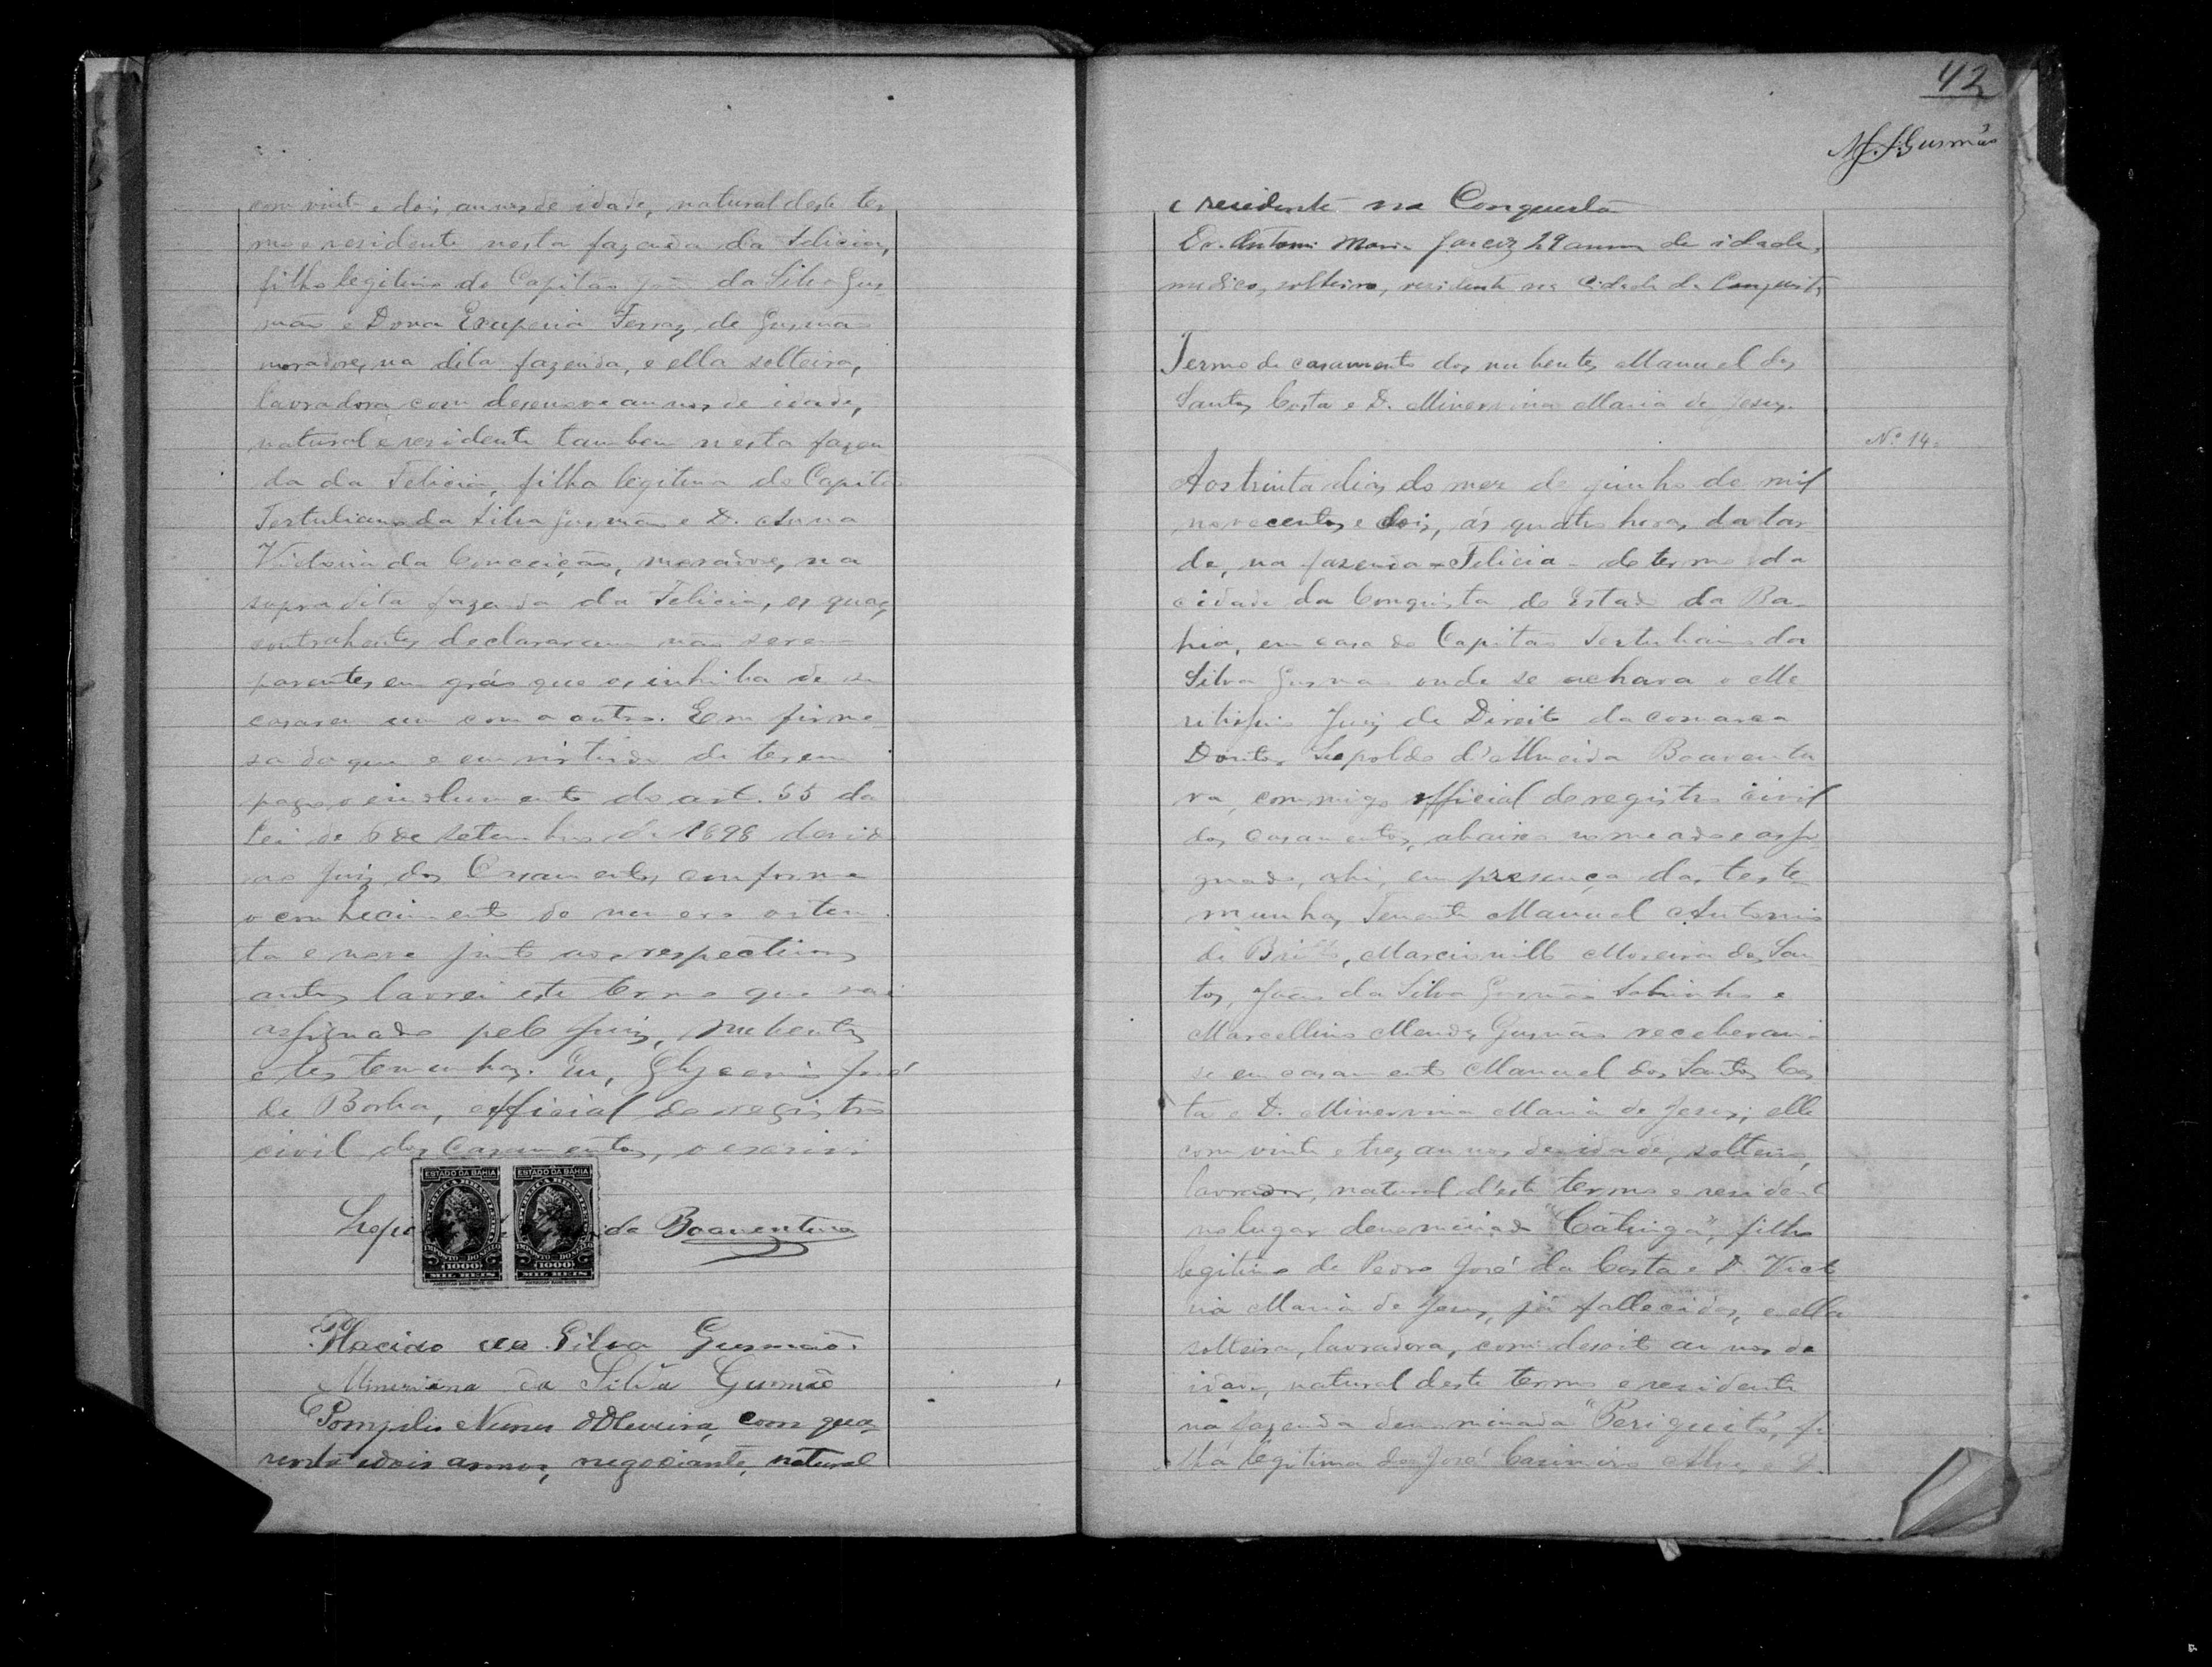 com vinte e dois annos de idade, natural deste ter
mo e residente nesta fazenda da Felicia,
filho legitimo do Capitão João da Silva Gus
mão e Dona Exuperia Ferraz de Gusmão
moradores na dita fazenda, e ella solteira,
lavradora com desenove annos de idade,
natural e residente tambem nesta fazen
da da Felicia, filha legitima do Capitão
Tertuliano da Silva Gusmão e D. Anna
Victoria da Conceição, moradores na
supradita fazenda da Felicia, os quaes
contrahentes declararam não serem
parentes em gráo que os inhiba de se
casarem um com o outro. Em firme
sa do que e em virtude de terem
pago o emolumento do art. 55 da
Lei de 6 de Setembro de 1898 devido
ao Juiz dos Casamentos, conforme
o conhecimento de numero oiten
ta e nove junto aos respectivos
autos lavrei este termo que vai
assignado pelo Juiz, nubentes
e testemunhas. Eu, Glycerio José
de Borba, official do registro
civil dos casamentos, o escrevi
ESTADO DA BAHIA ESTADO DA BAHIA
IMPOSTO DO SELLO IMPOSTO DO SELLO
1000 1000
MIL REIS MIL REIS
Leopo da Boaventura
Placido da Silva Gusmão.
Minerviana da Silva Gusmão
Pompilio Nunes d'Oliveira, com qua
renta e dois annos, negociante, natural
42
M. Gusmão
e residente na Conquista
Dr. Antonio Maria 29 annos de idade,
medico, solteiro, residente na Cidade da Conquista
Termo de casamento dos nubentes Manuel dos
Santos Costa e D. Minervina Maria de Jesus.
Nº 14.
Aos trinta dias do mez de junho de mil
novecentos e dois, ás quatro horas da tar
de, na fazenda - Felicia - do termo da
cidade da Conquista do Estado da Ba-
hia, em casa do Capitão Tertuliano da
Silva Gusmão onde se achava o Me
ritissimo Juiz de Direito da comarca
Doutor Leopoldo d'Almeida Boaventu
ra, commigo official do registro civil
dos casamentos, abaixo nomeado e assi
gnado, ahi, em presença das teste-
munhas, Tenente Manuel Antonio
de Britto, Marcionillo Moreira dos San
tos, João da Silva Gusmão Sobrinho e
Marcellino Mendes Gusmão receberam-
se em casamento Manuel dos Santos Cos
ta e D. Minervina Maria de Jesus; elle
com vinte e tres annos de idade, solteiro,
lavrador, natural d'este termo e resident
no lugar denominado "Catinga", filho
legitimo de Pedro José da Costa e D. Victo
ria Maria de Jesus, já fallecidos, e ella
solteira, lavradora, com desoito annos de
idade, natural deste termo e residente
na fazenda denominada "Periquito", fi
lha legitima de José Casimiro Alves e D.